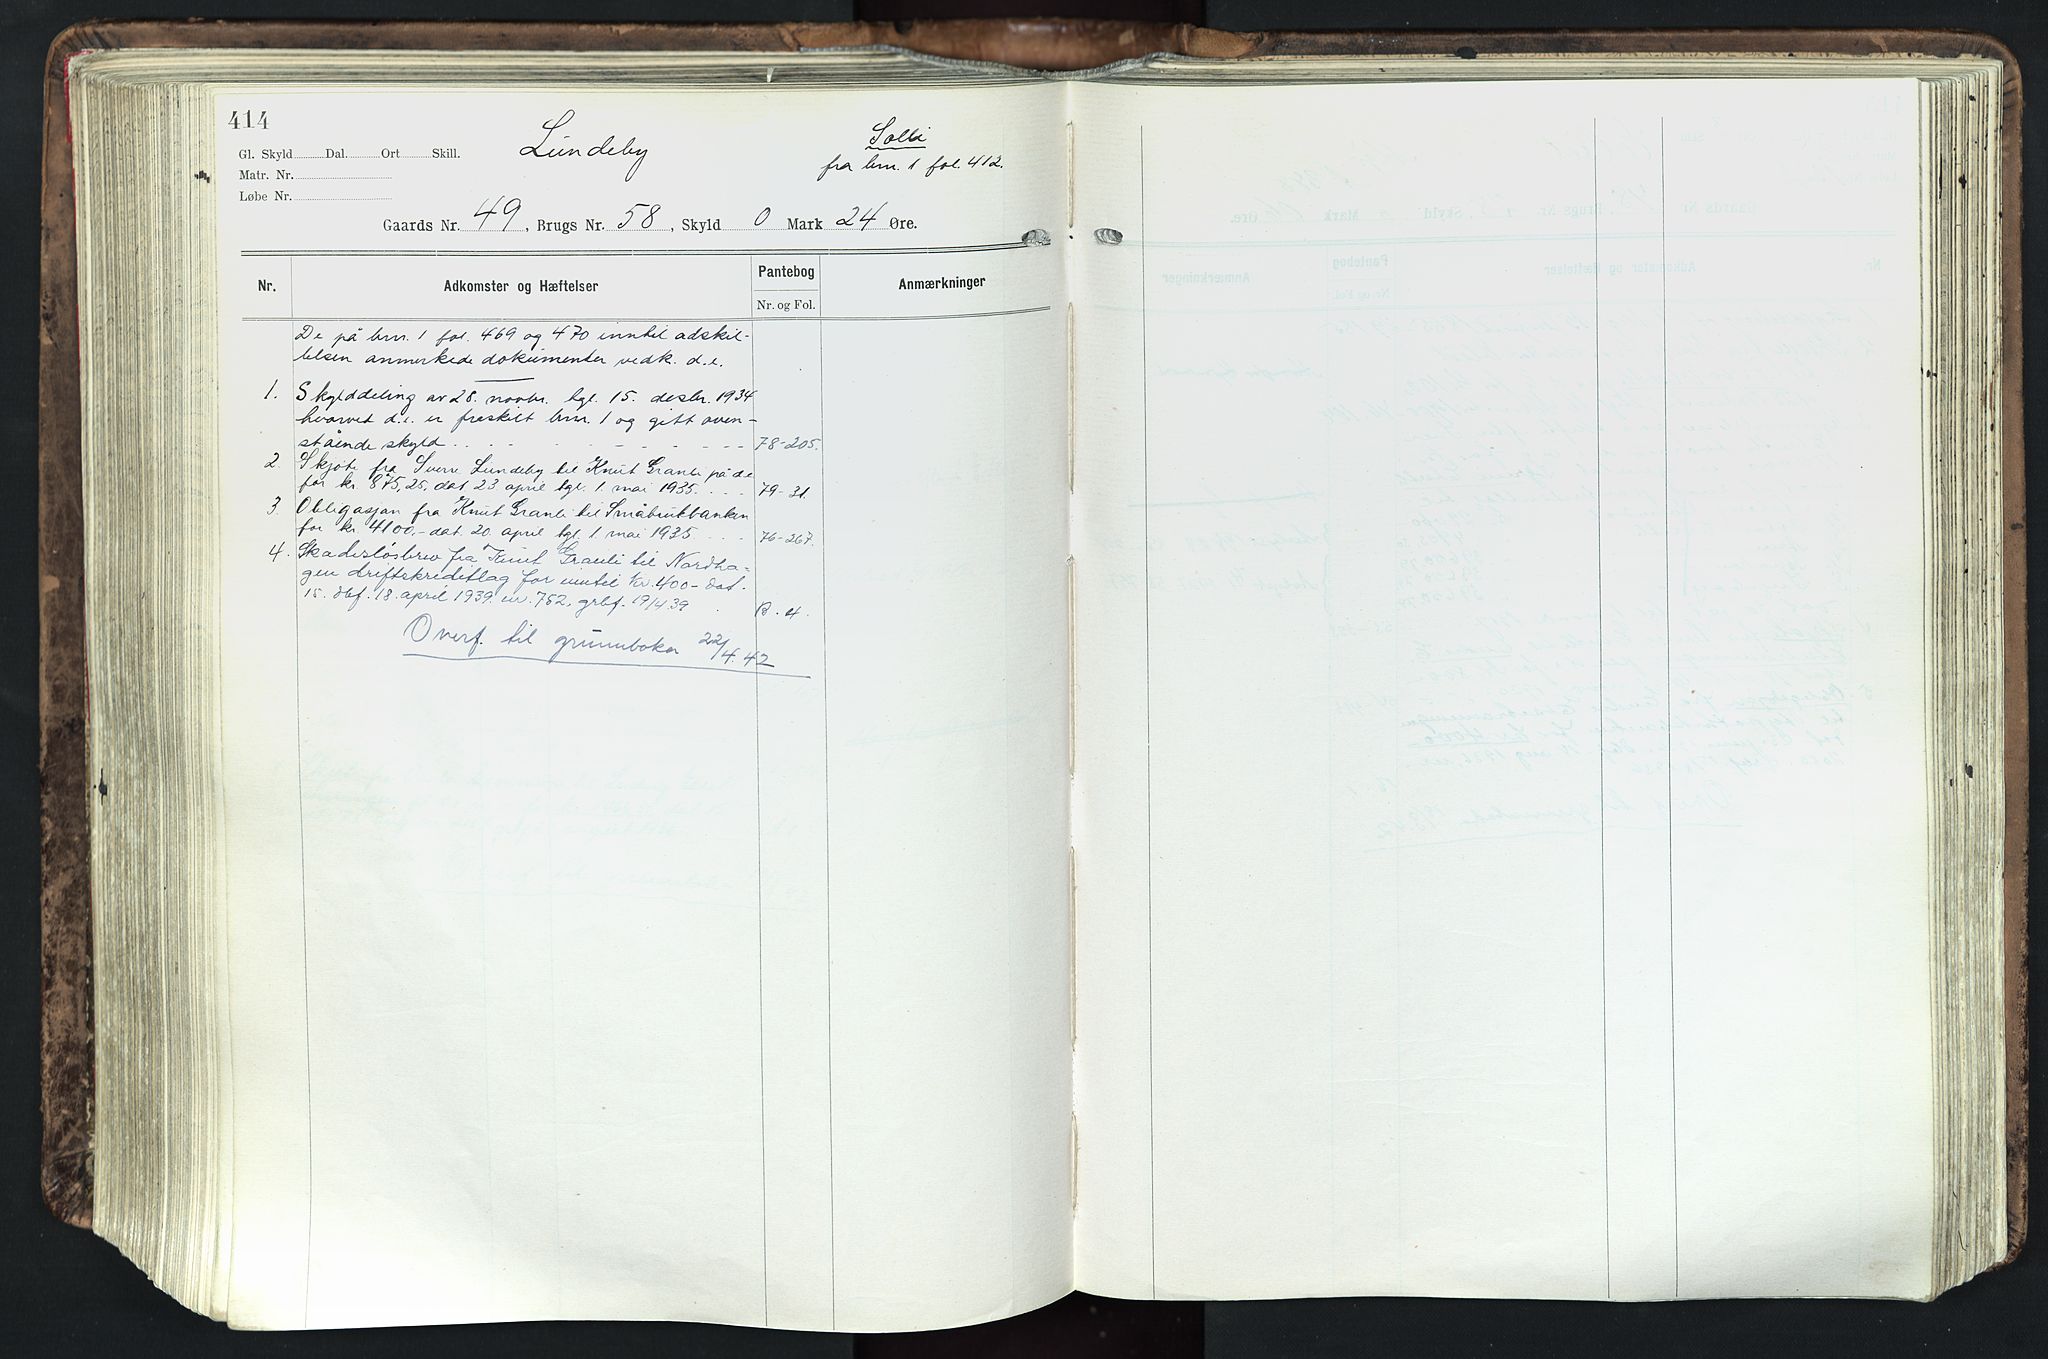 414
Gl. Skyld Dal. Ort Skill.
Matr. Nr.
Løbe Nr.
Lundeby
Solli
fra brn. 1 fol. 412.
Gaards Nr. 49, Brugs Nr. 58, Skyld 0 Mark 24 Øre.
Nr.
Adkomster og Hæftelser
Pantebog
Nr. og Fol.
Anmærkninger
De på brn. 1 fol. 469 og 470 inntil adskil-
lelsen anmerkede dokumenter vedk. d.e.
1. Skylddeling av 28. novbr. tgl. 15. desbr. 1934
hvorved d.e. er fraskilt brn. 1 og gitt oven-
stående skyld 78-205.
2. Skjøte fra Sverre Lundeby til Knut Granli på d.e
for kr. 875,25, dat. 23 april tgl. 1. mai 1935. 79-31.
3. Obligasjon fra Knut Granli til Småbrukbanken
for kr. 4100.- dat. 20. april tgl. 1 mai 1935 76-267.
4. Skadesløsbrev fra Knut Granli til Nordha-
gen driftskreditlag for inntil kr. 400- dat.
15. dbf. 18. april 1939. nr. 752, grbf. 19/4 39 B. 4.
Overf. til grunnboken 22/4. 42